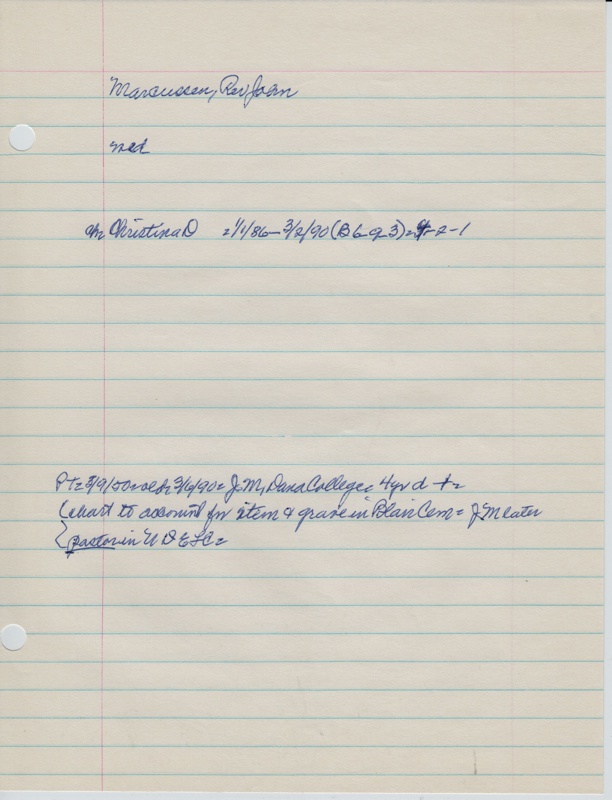 Marcussen, Rev John
md
Christina D = 1/1/86 - 3/2/90 (B 6 g 3) = 4-2-1
Pt = 3/9/ 3/6/90 = J.M, Dana College, 4 yr d + =
(chart to account for item & grave in Blair Cem = J M later
pastor in U D E L C =